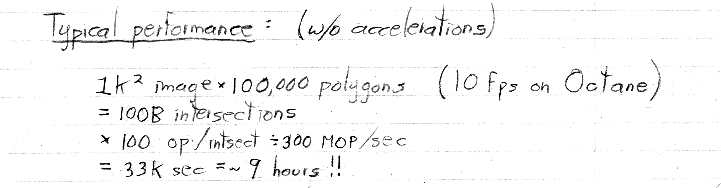 Typical performance: (w/o accelerations)
1k² image × 100,000 polygons (10 fps on Octane)
= 100B intersections
× 100 op/intsect ÷ 300 MOP/sec
= 33k sec = ~ 9 hours!!